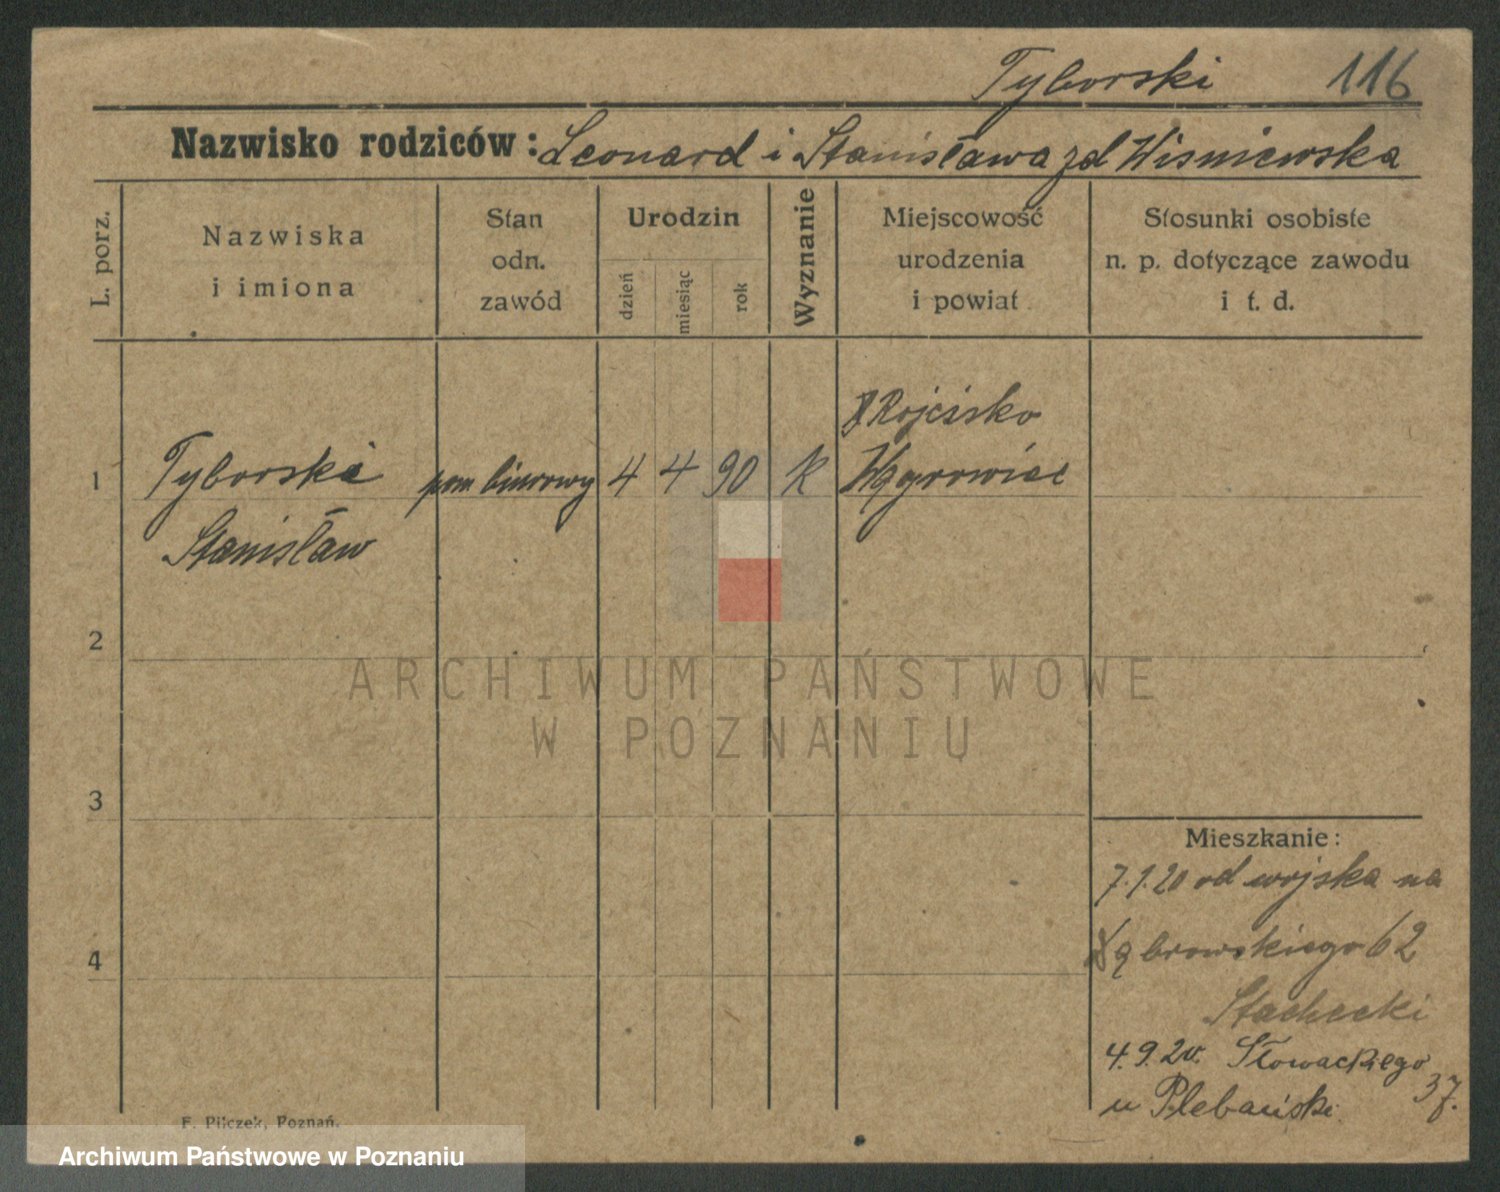 Tyborski 116
Nazwisko rodziców: Leonard i Stanisława zd Wisniewska
L. porz.
Nazwiska
i imiona
Stan
odn.
zawód
Urodzin
dzień
miesiąc
rok
Wyznanie
Miejscowość
urodzenia
i powiat
Stosunki osobiste
n. p. dotyczące zawodu
i t. d.
Rojcisko
1 Tyborski pom biurowy 4 4 90 k Wągrowiec
Stanisław
2
ARCHIWUM PAŃSTWOWE
W POZNANIU
3
Mieszkanie:
7.1.20 od wojska na
4 Dąbrowskiego 62
Stachecki
4.9.20. Słowackiego 37.
u Plebański
F. Pilczek, Poznań.
Archiwum Państwowe w Poznaniu